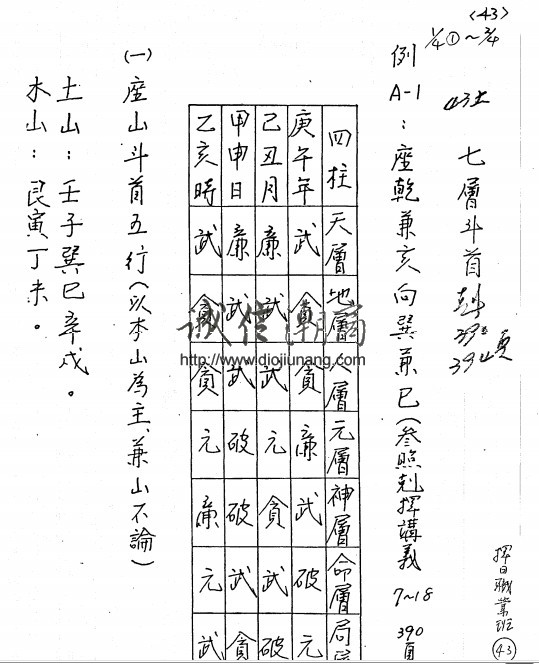 (43)
¼①～¾
七層斗首剋
例A-1：座乾兼亥向巽兼巳(參照剋擇講義7~18 390頁
四柱 天層 地層 人層 元層 神層 命層
庚午年 武 貪 貪 廉 武 破 元
己丑月 廉 武 武 元 貪 武 破
甲申日 廉 武 武 破 破 武 貪
乙亥時 武 貪 貪 元 廉 元 武
(一) 座山斗首五行(以本山為主、兼山不論)
土山：壬子巽巳辛戌。
木山：艮寅丁未。
擇日職業班
43
诚信潮商
http://www.diojiunang.com